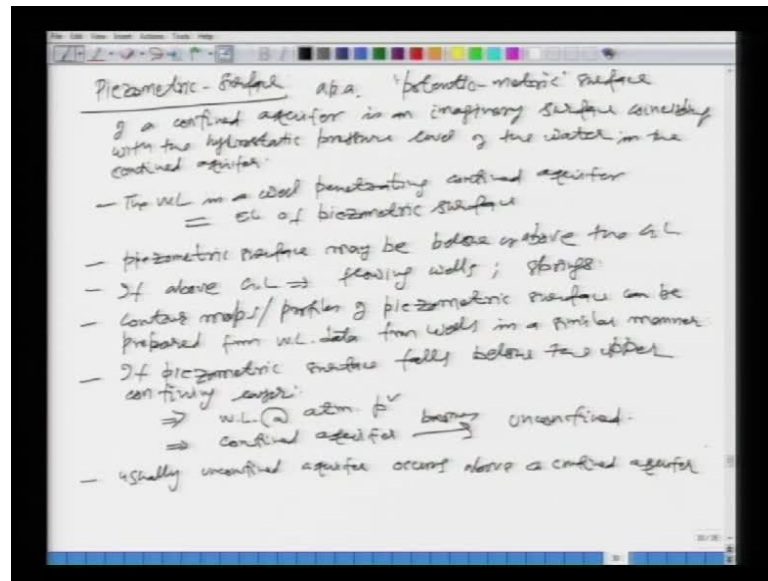 File Edit View Insert Actions Tools Help
Piezometric-Surface a.k.a. "potentio-metric" surface
of a confined aquifer is an imaginary surface coinciding
with the hydrostatic pressure level of the water in the
confined aquifer.
- The WL in a well penetrating confined aquifer
= EL of piezometric surface
- piezometric surface may be below or above the G.L
- If above G.L ⇒ flowing wells; springs.
- contour maps/profiles of piezometric surface can be
prepared from W.L. data from wells in a similar manner
- If piezometric surface falls below the upper
confining layer:
⇒ W.L. @ atm. pr
⇒ confined aquifer becomes → unconfined.
- usually unconfined aquifer occurs above a confined aquifer